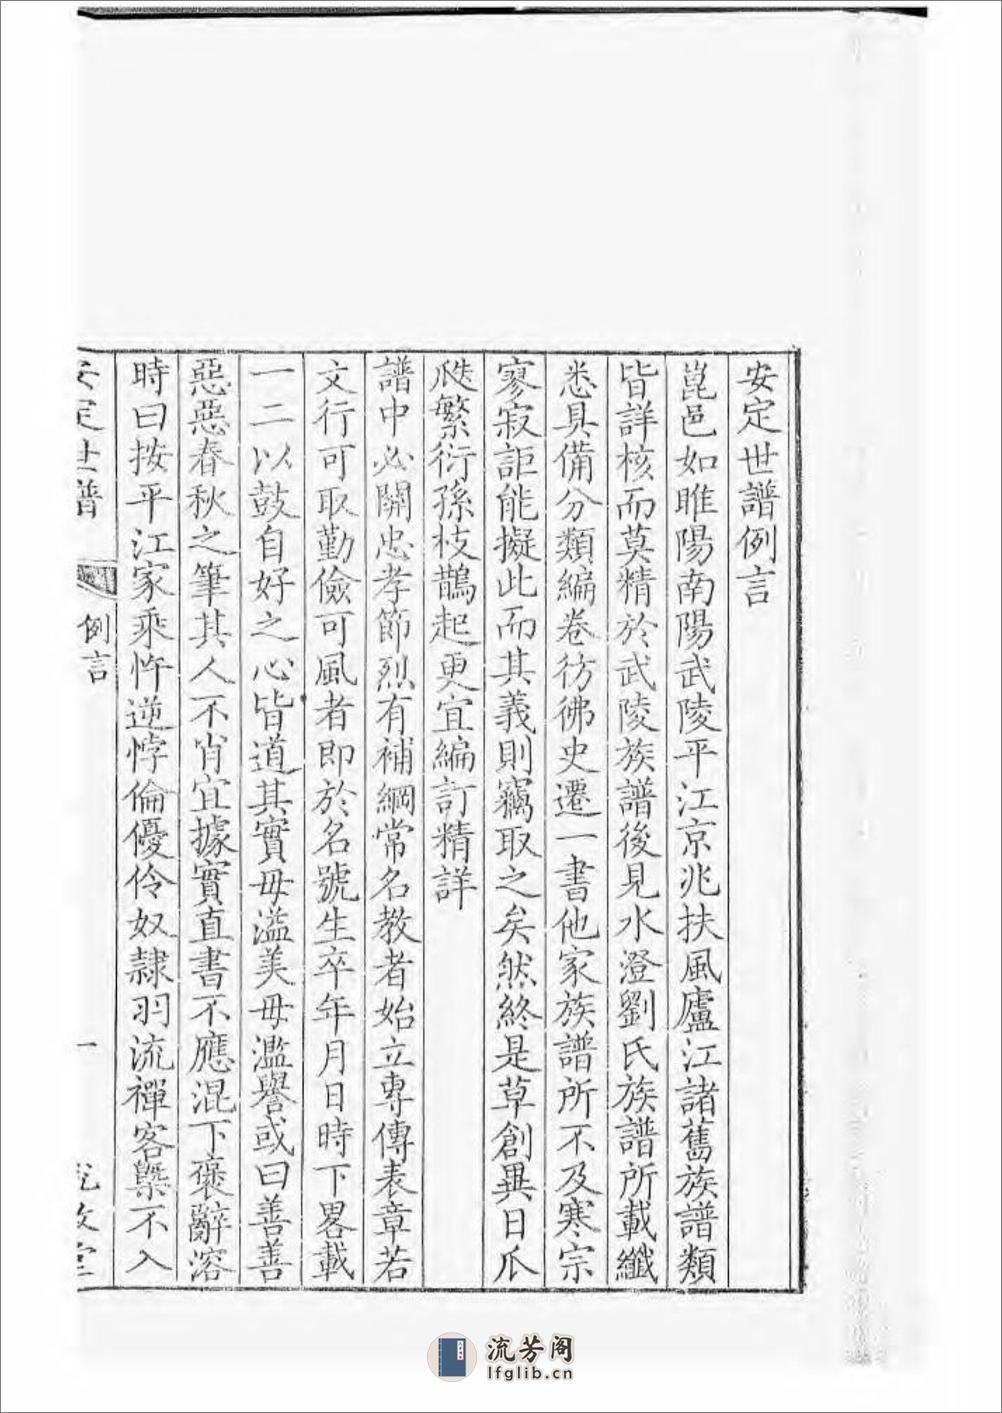 安定世譜例言
崑邑如睢陽南陽武陵平江京兆扶風廬江諸舊族譜類
皆詳核而莫精於武陵族譜後見水澄劉氏族譜所載纖
悉具備分類編卷彷彿史遷一書他家族譜所不及寒宗
寥寂詎能擬此而其義則竊取之矣然終是草創異日瓜
瓞繁衍孫枝鵲起更宜編訂精詳
譜中必關忠孝節烈有補綱常名教者始立專傳表章若
文行可取勤儉可風者即於名號生卒年月日時下畧載
一二以鼓自好之心皆道其實毋溢美毋濫譽或曰善善
惡惡春秋之筆其人不肖宜據實直書不應混下褒辭溶
時曰按平江家乘忤逆悖倫優伶奴隷羽流禪客槩不入
安定世譜
例言
一
流芳阁
lfglib.cn